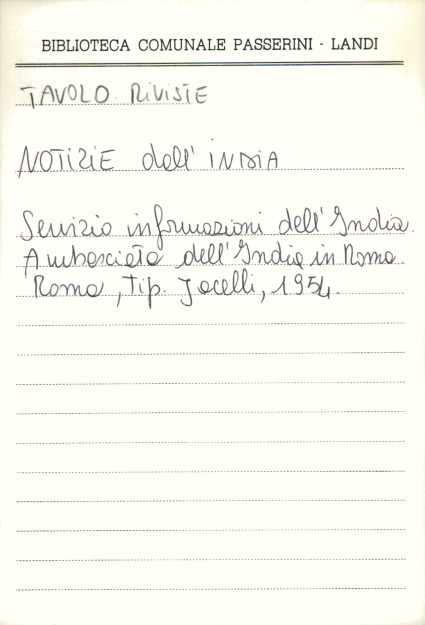 BIBLIOTECA COMUNALE PASSERINI - LANDI
TAVOLO RIVISTE
NOTIZIE dell' INDIA
Servizio informazioni dell'India.
Ambasciata dell'India in Roma.
Roma, Tip. Jacelli, 1954.